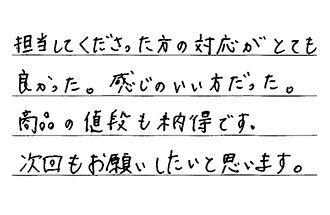 担当してくださった方の対応がとても
良かった。感じのいい方だった。
商品の値段も納得です。
次回もお願いしたいと思います。